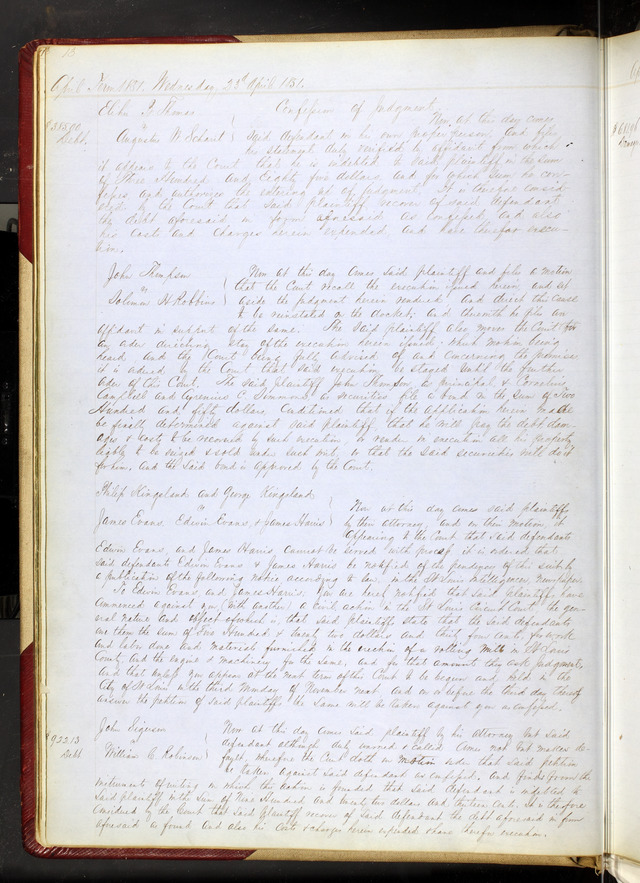 April Term 1851. Wednesday 23d April 1851.
Confession of Judgment
Now at this day comes
$385.00 Debt.
Augustus W. Scharit said defendant in his own proper person, and files
his statement duly verified by affidavit from which
it appears to the Court that he is indebted to said plaintiff in the sum
of Three Hundred and Eighty five dollars and for which sum he con-
fesses and authorizes the entering up of judgment. It is therefore consid-
ered by the Court that said plaintiff recover of said defendant
the debt aforesaid in form aforesaid as confessed, and also
his costs and charges herein expended and have therefor execu-
tion.
John Thompson
vs
Solomon H. Robbins
Now at this day comes said plaintiff and files a motion
that the Court recall the execution issued herein, and set
aside the judgment herein rendered and direct this cause
to be reinstated on the docket: and therewith he files an
affidavit in support of the same. The said plaintiff also moves the Court for
an order directing stay of the execution herein issued: which motion being
heard, and the Court being fully advised of and concerning the premises
it is ordered by the Court that said execution be stayed until the further
order of this Court. The said plaintiff John Thompson as principal & Cornelius
Campbell and C. Simmons as securities file a bond in the sum of Two
Hundred and fifty dollars Conditioned that if the application herein made
be finally determined against said plaintiff, that he will pay the debt dam-
ages & costs to be recovered by such execution, or render in execution all his property
liable to be seized & sold under such writ, or that the said securities will do it
for him. And the said bond is approved by the Court.
Philip Kingsland and George Kingsland
vs
James Evans, Edwin Evans & James Harris
Now at this day comes said plaintiffs
by their attorney, and on their motion, it
appearing to the Court that said defendants
Edwin Evans and James Harris, cannot be served with process, it is ordered that
said defendants Edwin Evans & James Harris be notified of the pendency of this suit by
a publication of the following notice according to law, in the St Louis Intelligencer, Newspaper.
To Edwin Evans and James Harris: You are hereby notified that said plaintiffs have
commenced against you (with another) a civil action in the St Louis Circuit Court, the gen-
eral nature and effect of which is, that said plaintiffs state that the said defendants
owe them the sum of Two Hundred & twenty two dollars and thirty four cents, for work
and labor done and material furnished, in the erection of a rolling Mill in St Louis
County and the engine & machinery for the same, and for that amount they ask judgment,
and that unless you appear at the next term of this Court to be begun and held in the
City of St Louis on the third Monday of November next and on or before the third day thereof
answer the petition of said plaintiffs the same will be taken against you as confessed.
John Sigerson
vs
William C. Robinson
$922.13
Debt
Now at this day comes said plaintiff by his attorney but said
defendant although duly served & called comes not but makes de-
fault, wherefore the Court doth on motion order that said petition
be taken against said defendant as confessed. And finds from the
instruments of writing on which this action is founded that said defendant is indebted to
said plaintiff in the sum of Nine Hundred and twenty two dollars and thirteen cents. It is therefore
considered by the Court that said plaintiff recover of said defendant the debt aforesaid in form
aforesaid as found and also his costs & charges herein expended & have therefor execution.